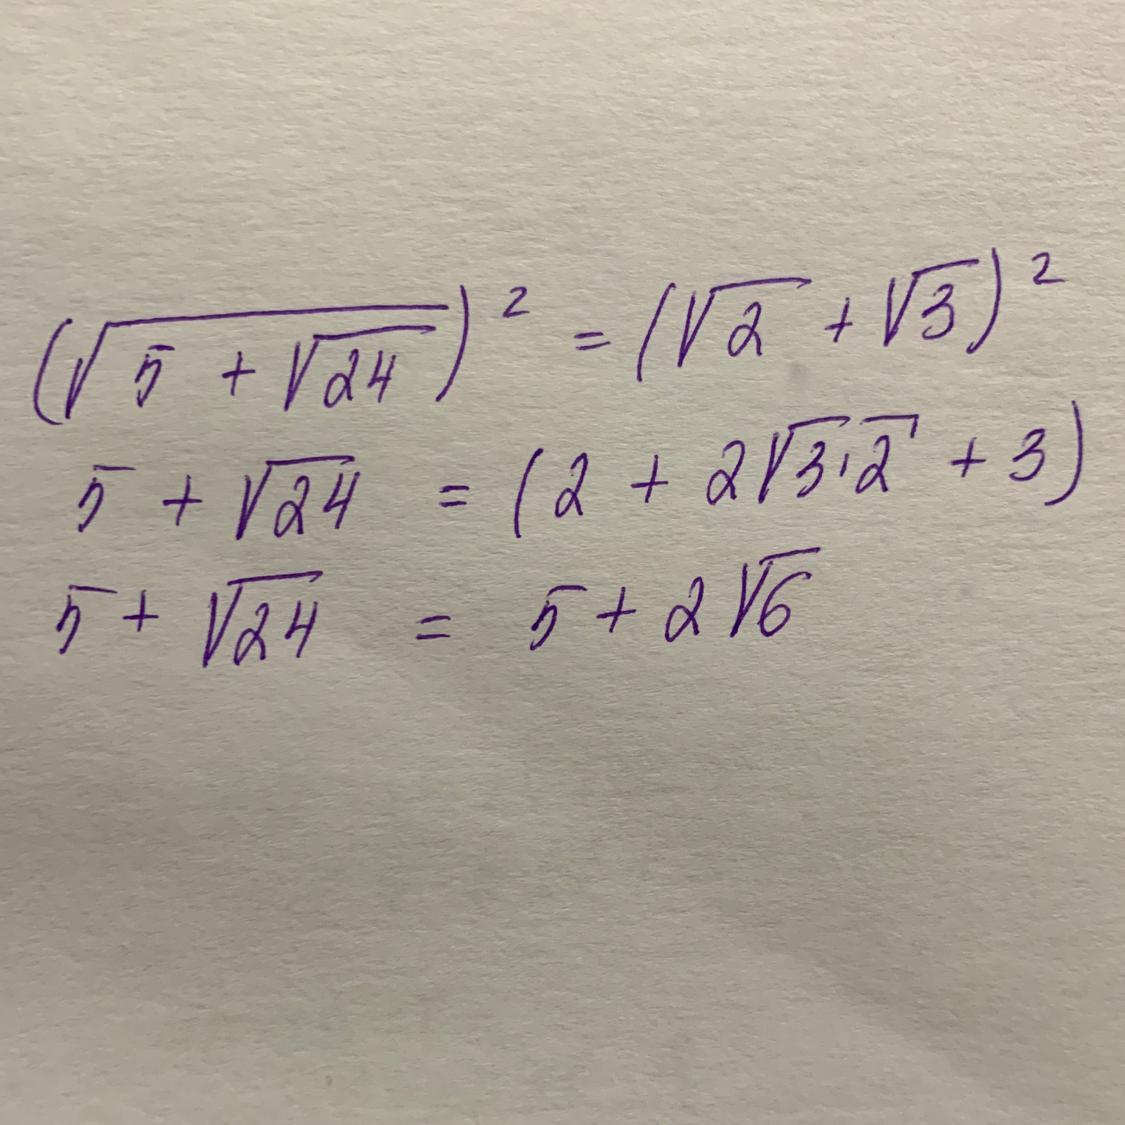 (√(5 + √24))² = (√2 + √3)²
5 + √24 = (2 + 2√3·2 + 3)
5 + √24 = 5 + 2√6